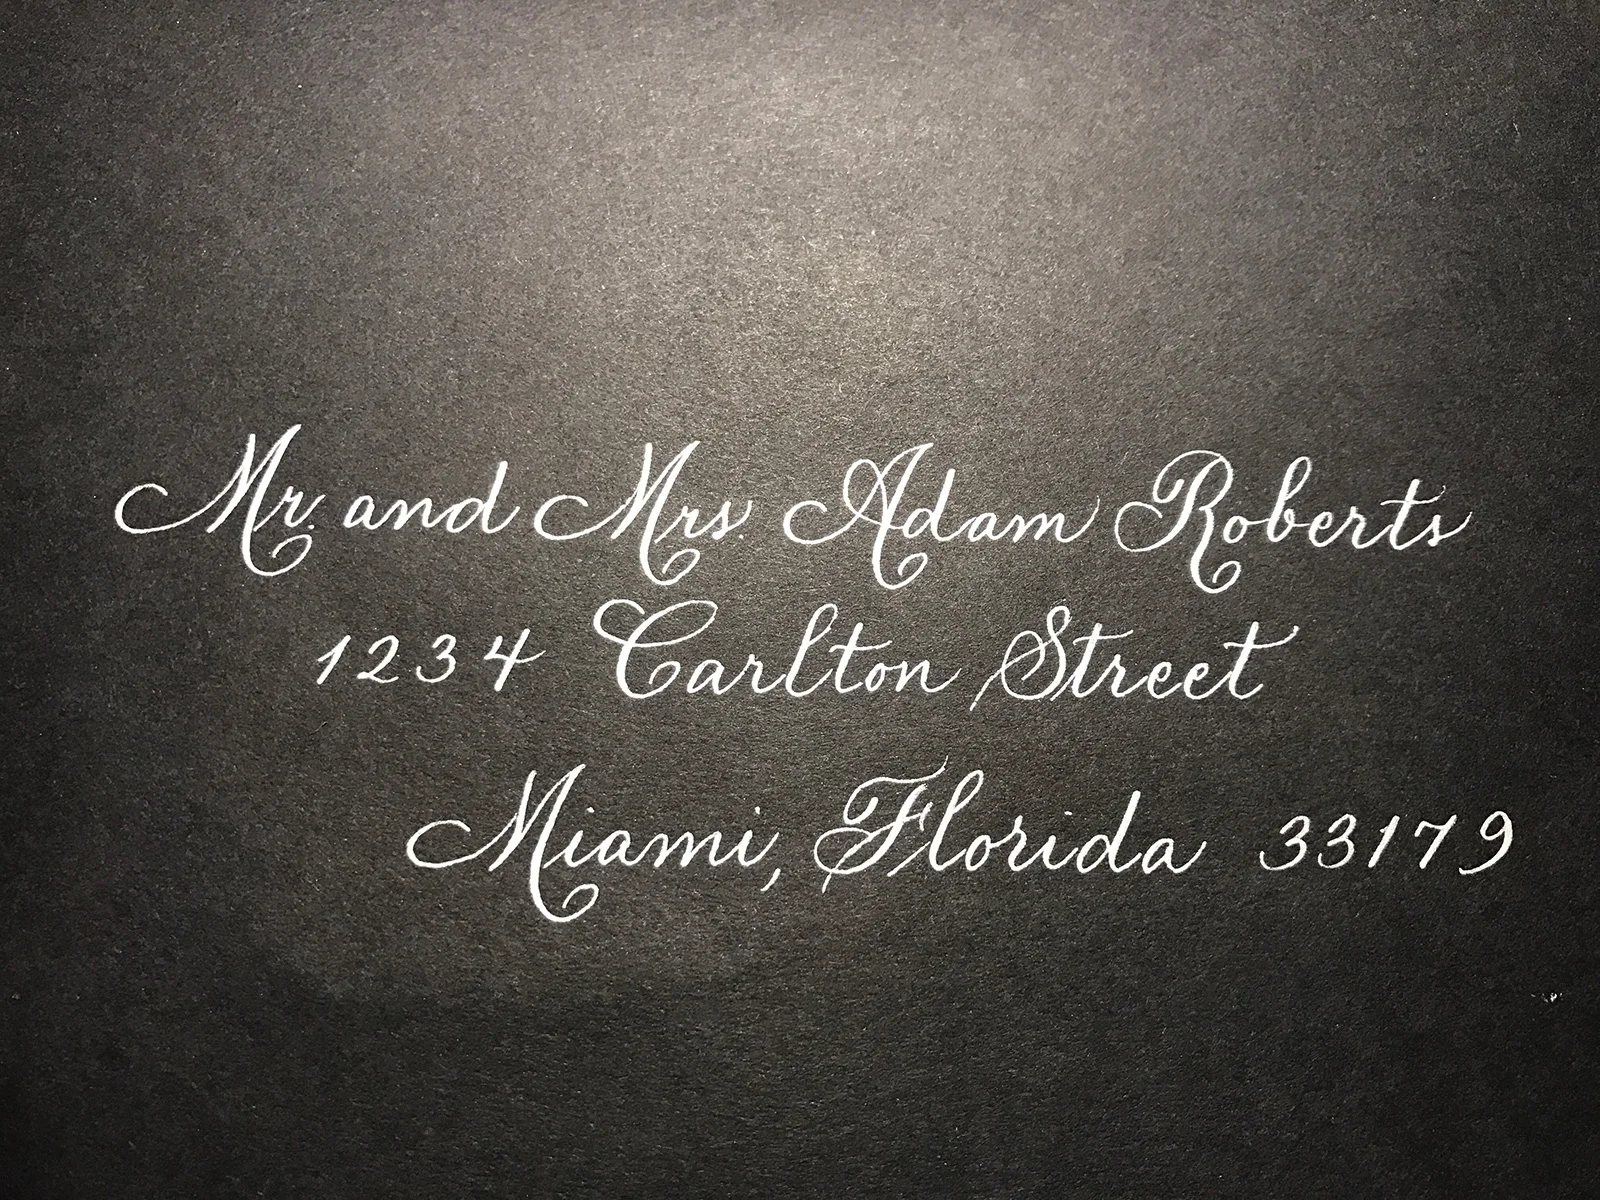 Mr. and Mrs. Adam Roberts
1234 Carlton Street
Miami, Florida 33179